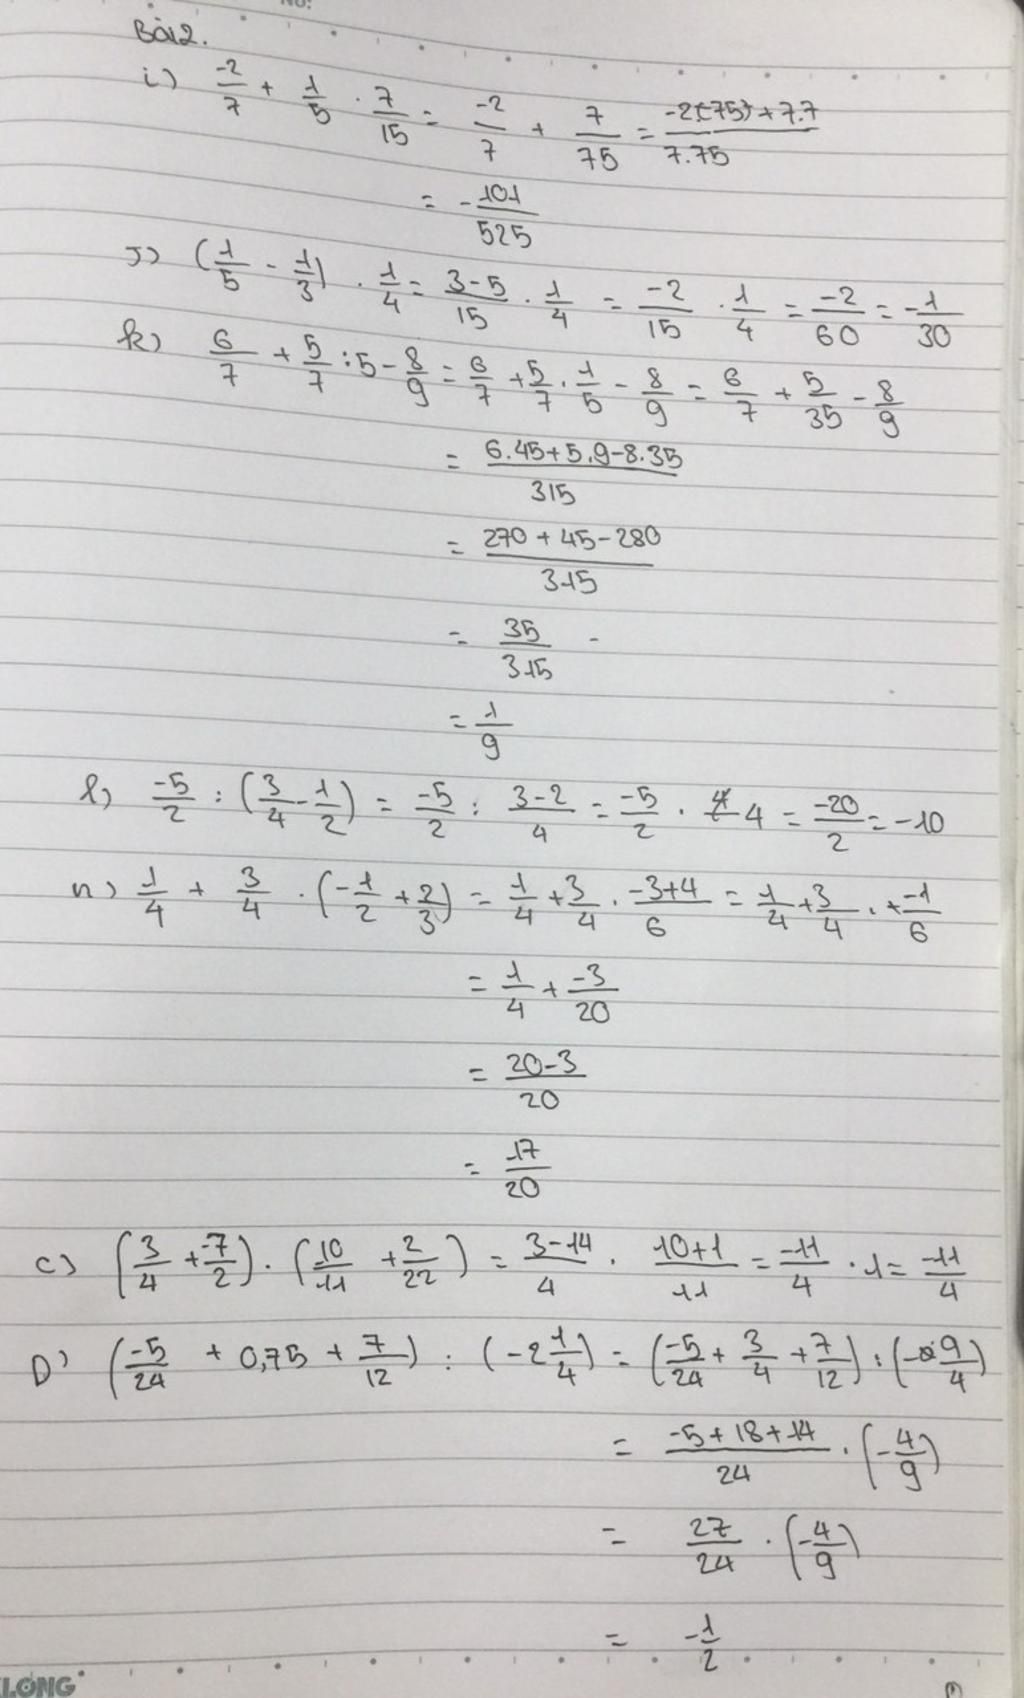 Bài 2.
i) -2/7 + 1/5 . 7/15 = -2/7 + 7/75 = -2.(75)+7.7/7.75
= -101/525
J) (1/5 - 1/3) . 1/4 = 3-5/15 . 1/4 = -2/15 . 1/4 = -2/60 = -1/30
k) 6/7 + 5/7 : 5 - 8/9 = 6/7 + 5/7 . 1/5 - 8/9 = 6/7 + 5/35 - 8/9
= 6.45+5.9-8.35/315
= 270+45-280/315
= 35/315
= 1/9
l) -5/2 : (3/4 - 1/2) = -5/2 : 3-2/4 = -5/2 . 4 = -20/2 = -10
n) 1/4 + 3/4 . (-1/2 + 2/3) = 1/4 + 3/4 . -3+4/6 = 1/4 + 3/4 . +-1/6
= 1/4 + -3/20
= 20-3/20
= 17/20
c) (3/4 + -7/2) . (10/11 + 2/22) = 3-14/4 . 10+1/11 = -11/4 . 1 = -11/4
D) (-5/24 + 0,75 + 7/12) : (-2 1/4) = (-5/24 + 3/4 + 7/12) : (-9/4)
= -5+18+14/24 . (-4/9)
= 27/24 . (-4/9)
= -1/2
KLONG